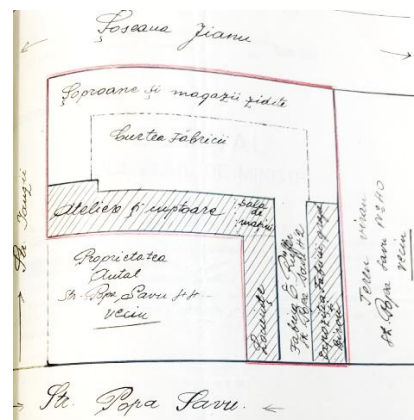 Șoseaua Jianu
Șoproane și magazii zidite
Curtea fabricii
Ateliere și cuptoare
Sala
de
mașini
Proprietatea
Antal
Str. Popa Savu 44
vecin
Locuințe
Fabrica
Str. Popa Savu 42
Expoziția fabricii
Birou
Teren viran
Str. Popa Savu Nº 40
vecin
Str.
Str. Popa Savu.